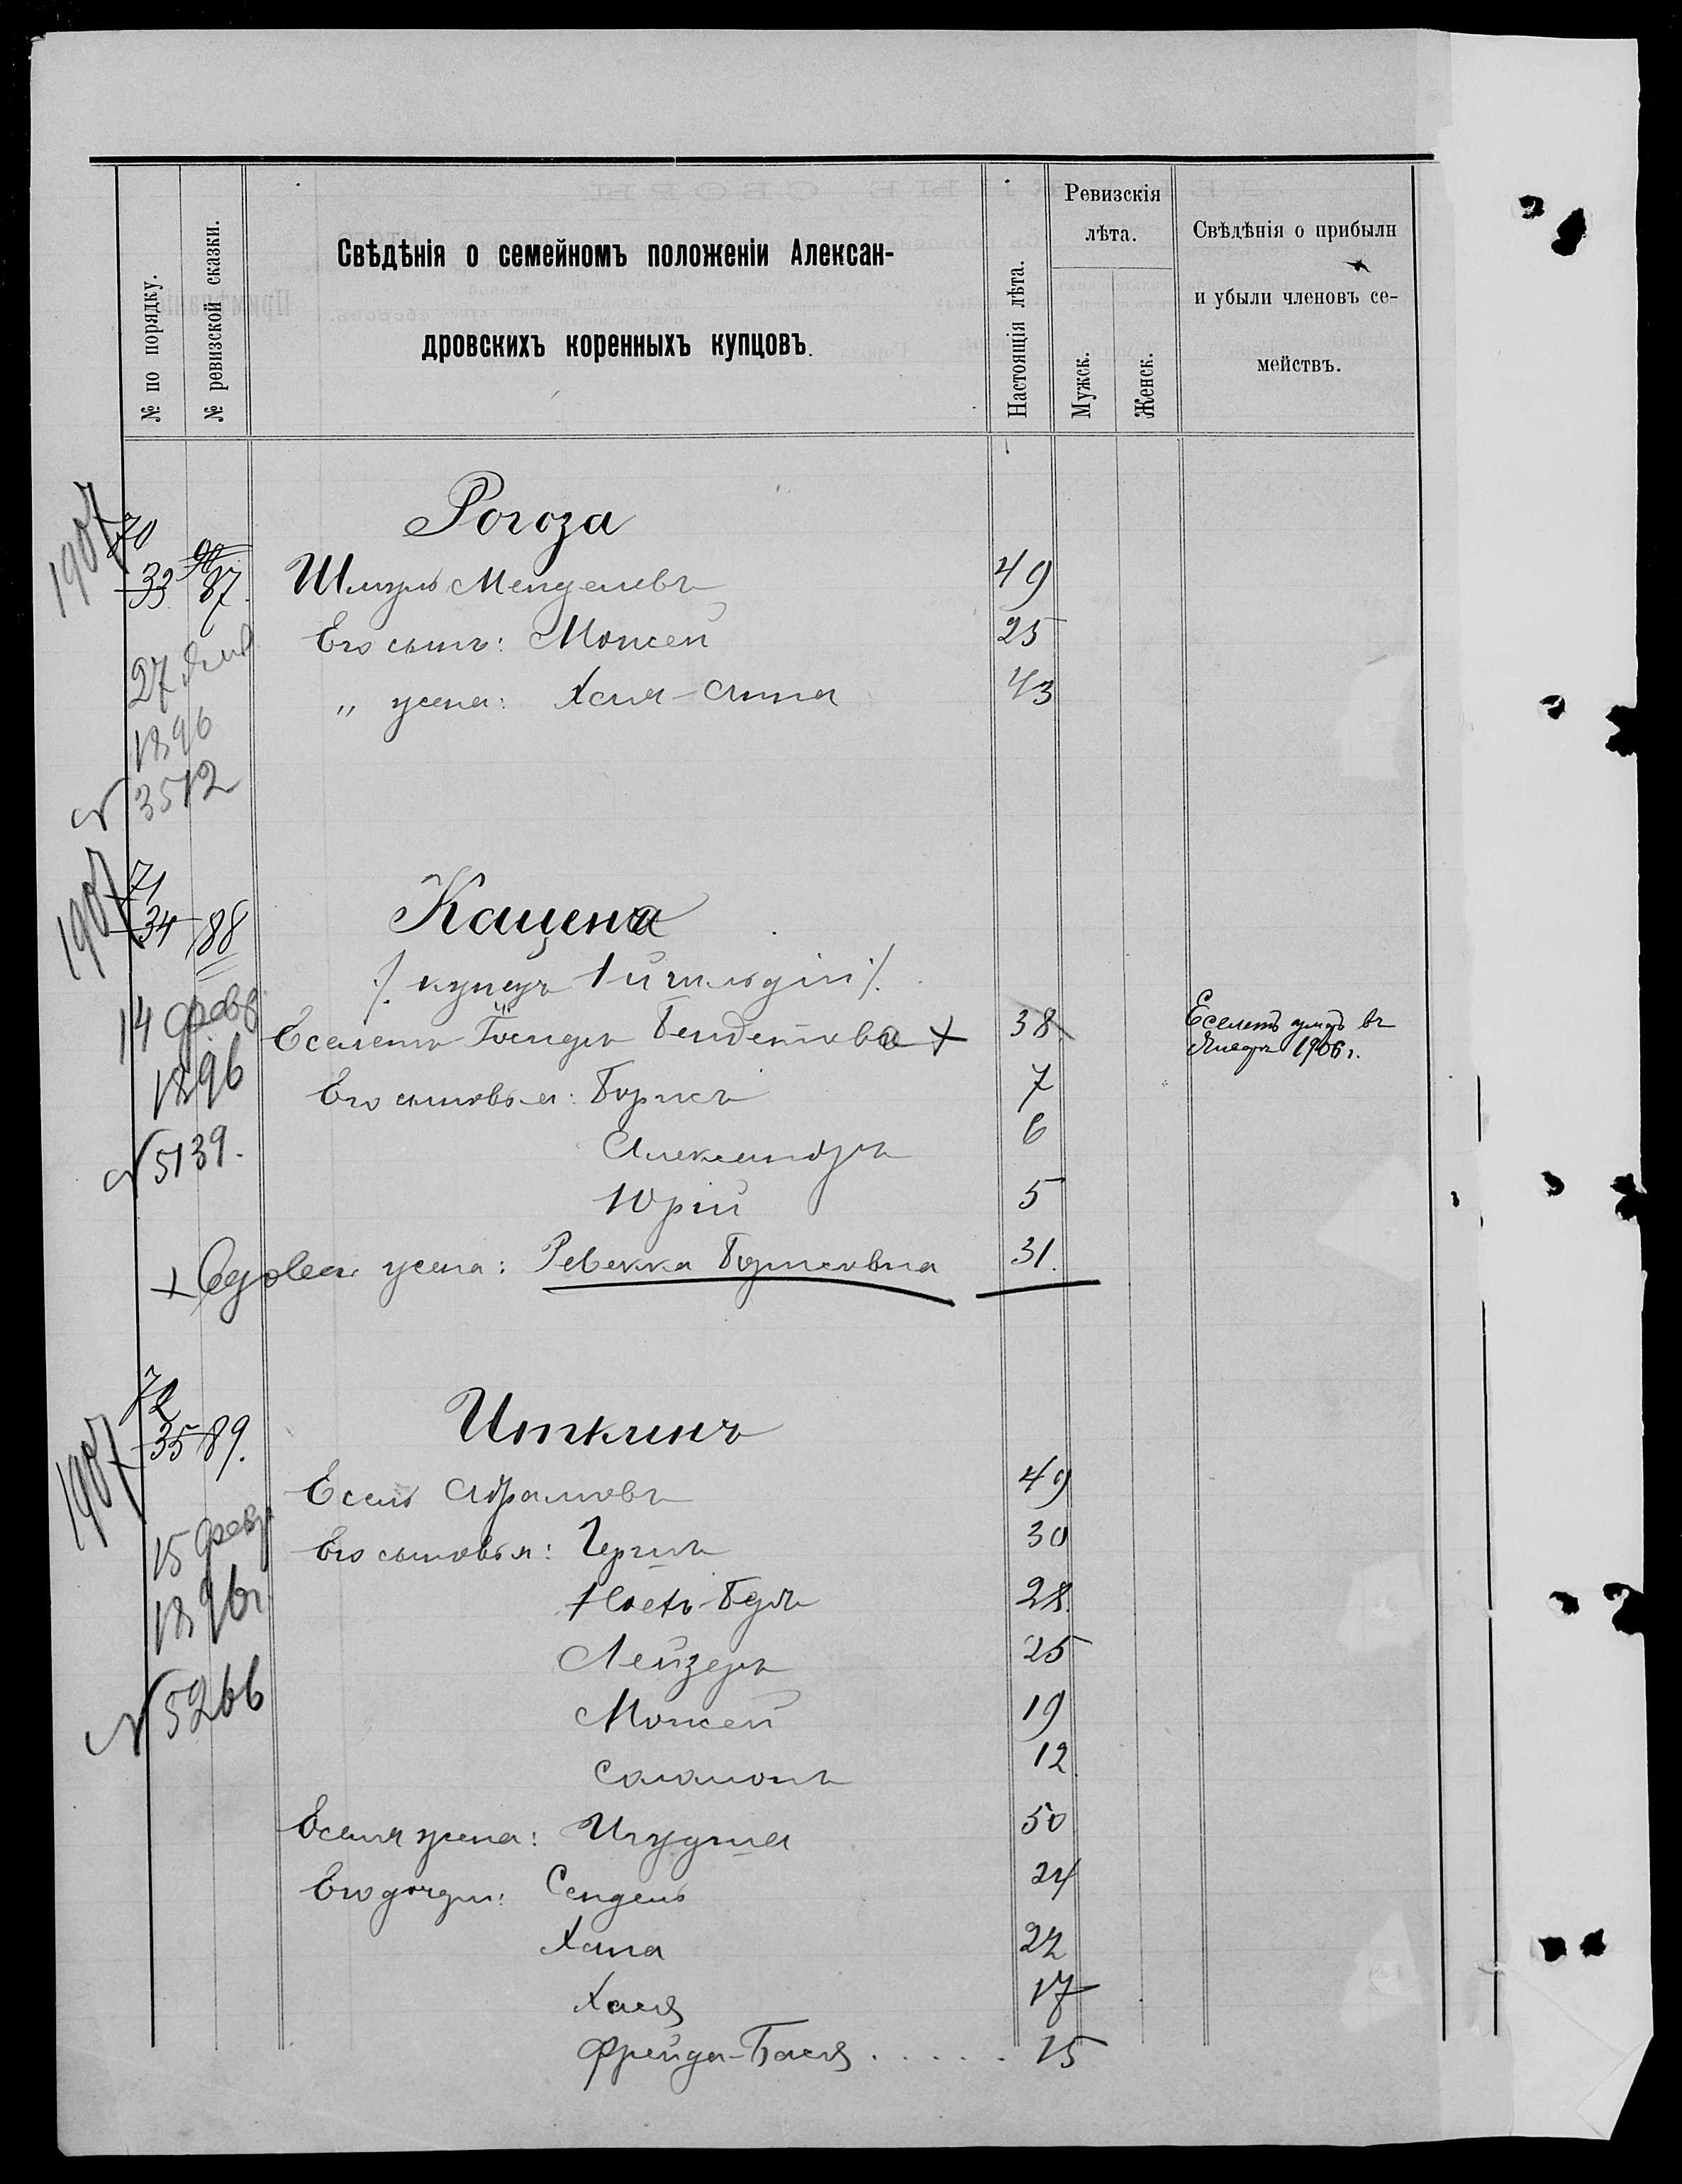 № по порядку.
№ ревизской сказки.
Свѣдѣнія о семейномъ положеніи Алексан-
дровскихъ коренныхъ купцовъ.
Настоящія лѣта.
Ревизскія
лѣта.
Мужск.
Женск.
Свѣдѣнія о прибыли
и убыли членовъ се-
мействъ.
1907
70
Рогоза
33 87. Шмуль Менделевъ 49
Его сынъ: Моисей 25
27 Янв
„ жена: Хая-Анна 43
1896
№ 3512
1907
71
34 88 Кацена
/. купецъ 1й гильдіи ./
14 февр
1896
38
Еселетъ умеръ въ
Январѣ 1906 г.
Его сыновья: Борисъ 7
Александръ 6
№ 5139.
Юрій 5
+ Вдова жена: Ревекка Борисовна 31.
1907
72
35 89. Иткинъ
Есель Абрамовъ 49
15 февр
1896 г.
Его сыновья: Герцъ 30
28.
Лейзеръ 25
№ 5266
Моисей 19
Соломонъ 12
Еселя жена: 50
Его дочери: Сендель 24
Хана 22
Хася 17
Фрейда-Бася . . . . . 15